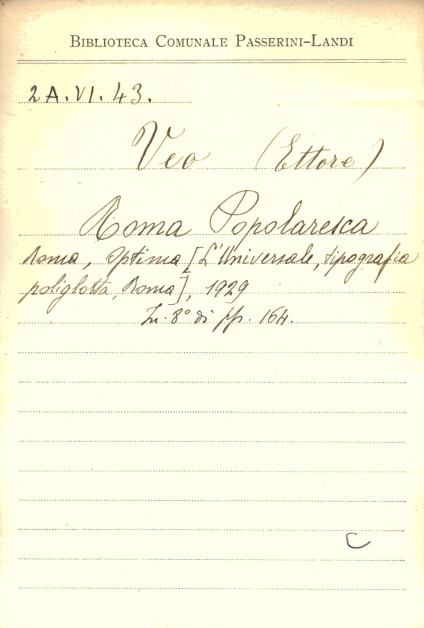 BIBLIOTECA COMUNALE PASSERINI-LANDI
2A.VI.43.
Veo (Ettore)
Roma Popolaresca
Roma, Optima [L'Universale, tipografia
poliglotta, Roma], 1929
In-8° di pp. 164.
C